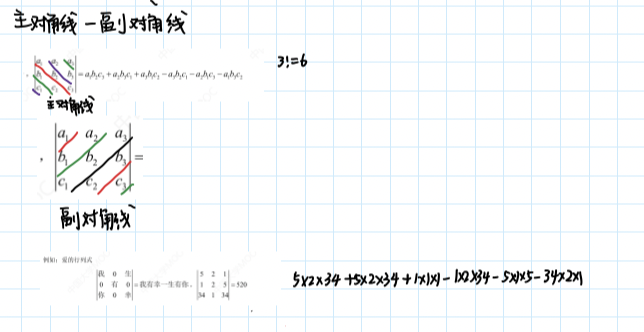 主对角线 - 副对角线
3!=6
|a₁ a₂ a₃|
|b₁ b₂ b₃| = a₁b₂c₃ + a₂b₃c₁ + a₃b₁c₂ - a₃b₂c₁ - a₂b₁c₃ - a₁b₃c₂
|c₁ c₂ c₃|
主对角线
|a₁ a₂ a₃|
|b₁ b₂ b₃| =
|c₁ c₂ c₃|
副对角线
例如:爱的行列式
|我 0 生| |5 2 1|
|0 有 0| = 我有幸一生有你, |1 2 5| = 520
|你 0 幸| |34 1 34|
5×2×34 + 5×2×34 + 1×1×1 - 1×2×34 - 5×1×5 - 34×2×1